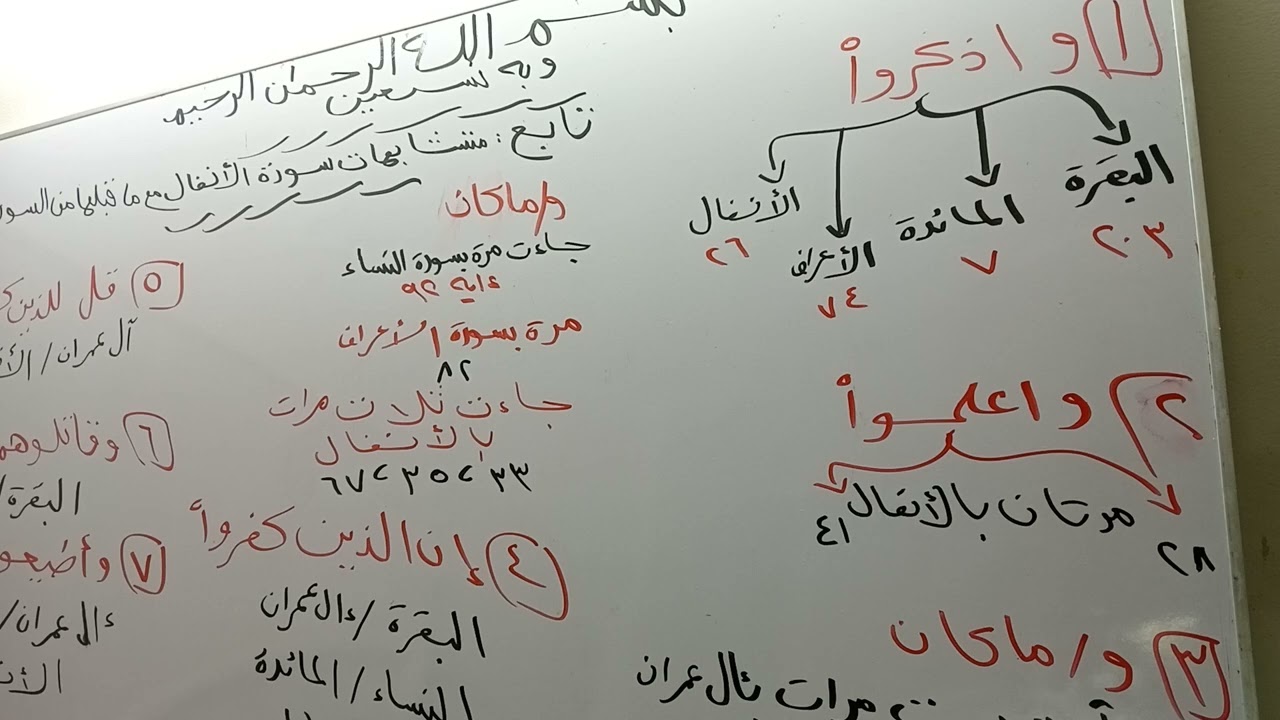 بسم الله الرحمن الرحيم
وبه نستعين
تابع: متشابهات سورة الأنفال مع ما قبلها من السور
١ واذكروا
البقرة ٢٠٣
المائدة ٧
الأعراف ٧٤
الأنفال ٢٦
٢ واعلموا
مرتان بالأنفال
٢٨
٤١
٣ و/ما كان
مرات بئال عمران
و/ما كان
جاءت مرة بسورة النساء
ءاية ٩٢
مرة بسورة الأعراف
٨٢
جاءت ثلاث مرات
بالأنفال
٣٣ > ٣٥ > ٦٧
٤ إن الذين كفروا
البقرة / ءال عمران
النساء / المائدة
٥ قل للذين
آل عمران /
٦ وقاتلوهم
البقرة /
٧ وأطيعو
ءال عمران /